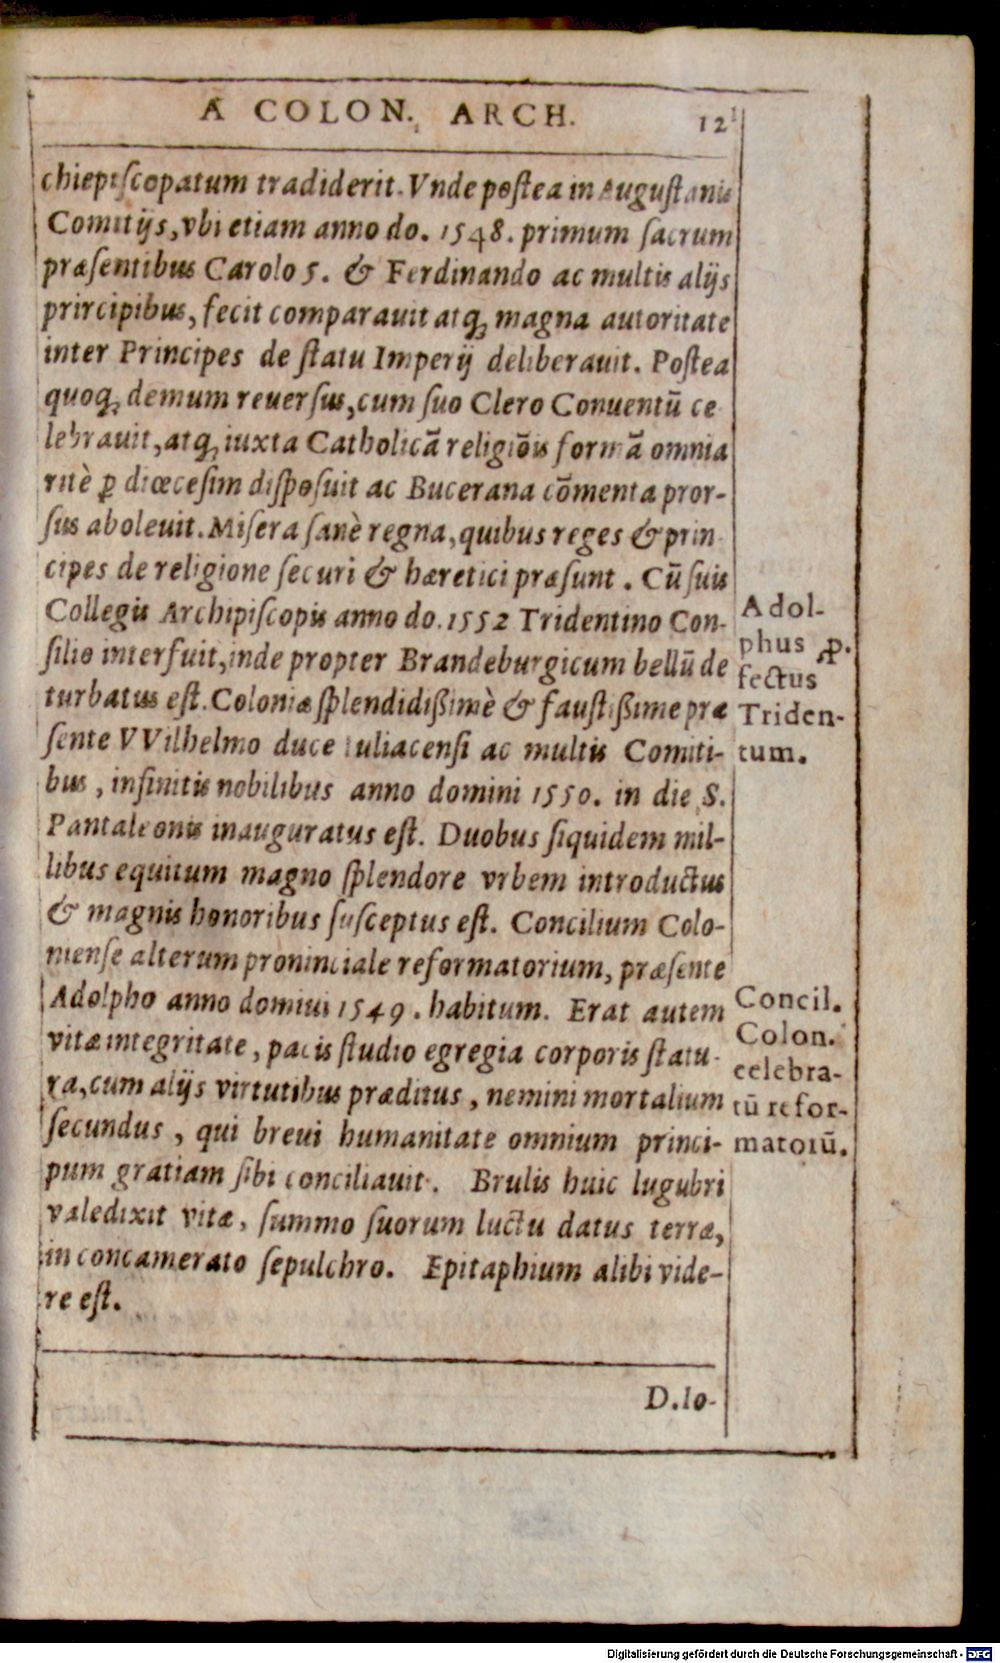 A COLON. ARCH. 121
chiepiſcopatum tradiderit. Vnde poſtea in Auguſtanis
Comitijs, vbi etiam anno do. 1548. primum ſacrum
præſentibus Carolo 5. & Ferdinando ac multis alijs
prircipibus, fecit comparauit atq; magna autoritate
inter Principes de ſtatu Imperij deliberauit. Poſtea
quoq; demum reuerſus, cum ſuo Clero Conuentū ce
lebrauit, atq; iuxta Catholicā religiōis formā omnia
ritè ꝑ diœceſim diſpoſuit ac Bucerana cōmenta pror-
ſus aboleuit. Miſera ſanè regna, quibus reges & prin
cipes de religione ſecuri & hæretici præſunt. Cū ſuis
Collegis Archipiſcopis anno do. 1552 Tridentino Con-
ſilio interfuit, inde propter Brandeburgicum bellū de
turbatus eſt. Coloniæ ſplendidißimè & fauſtißime præ
ſente VVilhelmo duce Iuliacenſi ac multis Comiti-
bus, infinitis nobilibus anno domini 1550. in die S.
Pantaleonis inauguratus eſt. Duobus ſiquidem mil-
libus equitum magno ſplendore vrbem introductus
& magnis honoribus ſuſceptus eſt. Concilium Colo-
nienſe alterum proninciale reformatorium, præſente
Adolpho anno domiui 1549. habitum. Erat autem
vitæ integritate, pacis ſtudio egregia corporis ſtatu-
ra, cum alijs virtutibus præditus, nemini mortalium
ſecundus, qui breui humanitate omnium princi-
pum gratiam ſibi conciliauit. Brulis huic lugubri
valedixit vitæ, ſummo ſuorum luctu datus terræ,
in concamerato ſepulchro. Epitaphium alibi vide-
re eſt.
D. Io-
Adol-
phus ꝓ.
fectus
Triden-
tum.
Concil.
Colon.
celebra-
tū refor-
matoiū.
Digitalisierung gefördert durch die Deutsche Forschungsgemeinschaft - DFG